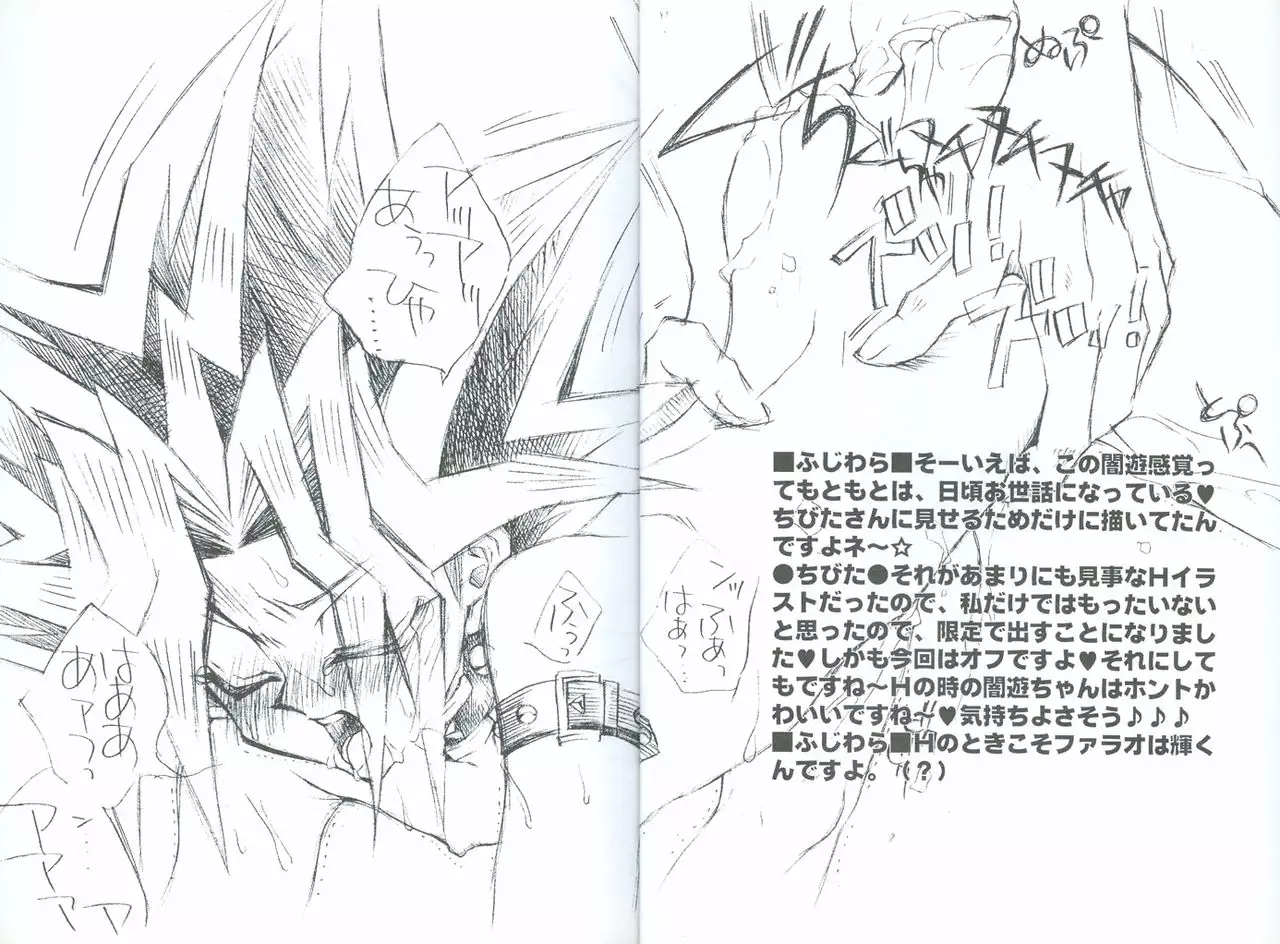 アッアッ
あっ
ひゃ
……
はああ
あァっ
ン…
アアアア
ふっ
っ
ンッ
ふあっ
はぁっ
ぬぷ
とぷ
■ふじわら■そーいえば、この闇遊感覚っ
てもともとは、日頃お世話になっている♥
ちびたさんに見せるためだけに描いてたん
ですよネ～☆
●ちびた●それがあまりにも見事なHイラ
ストだったので、私だけではもったいない
と思ったので、限定で出すことになりまし
た♥しかも今回はオフですよ♥それにして
もですね～Hの時の闇遊ちゃんはホントか
わいいですね～♥気持ちよさそう♪♪♪
■ふじわら■Hのときこそファラオは輝く
んですよ。（？）